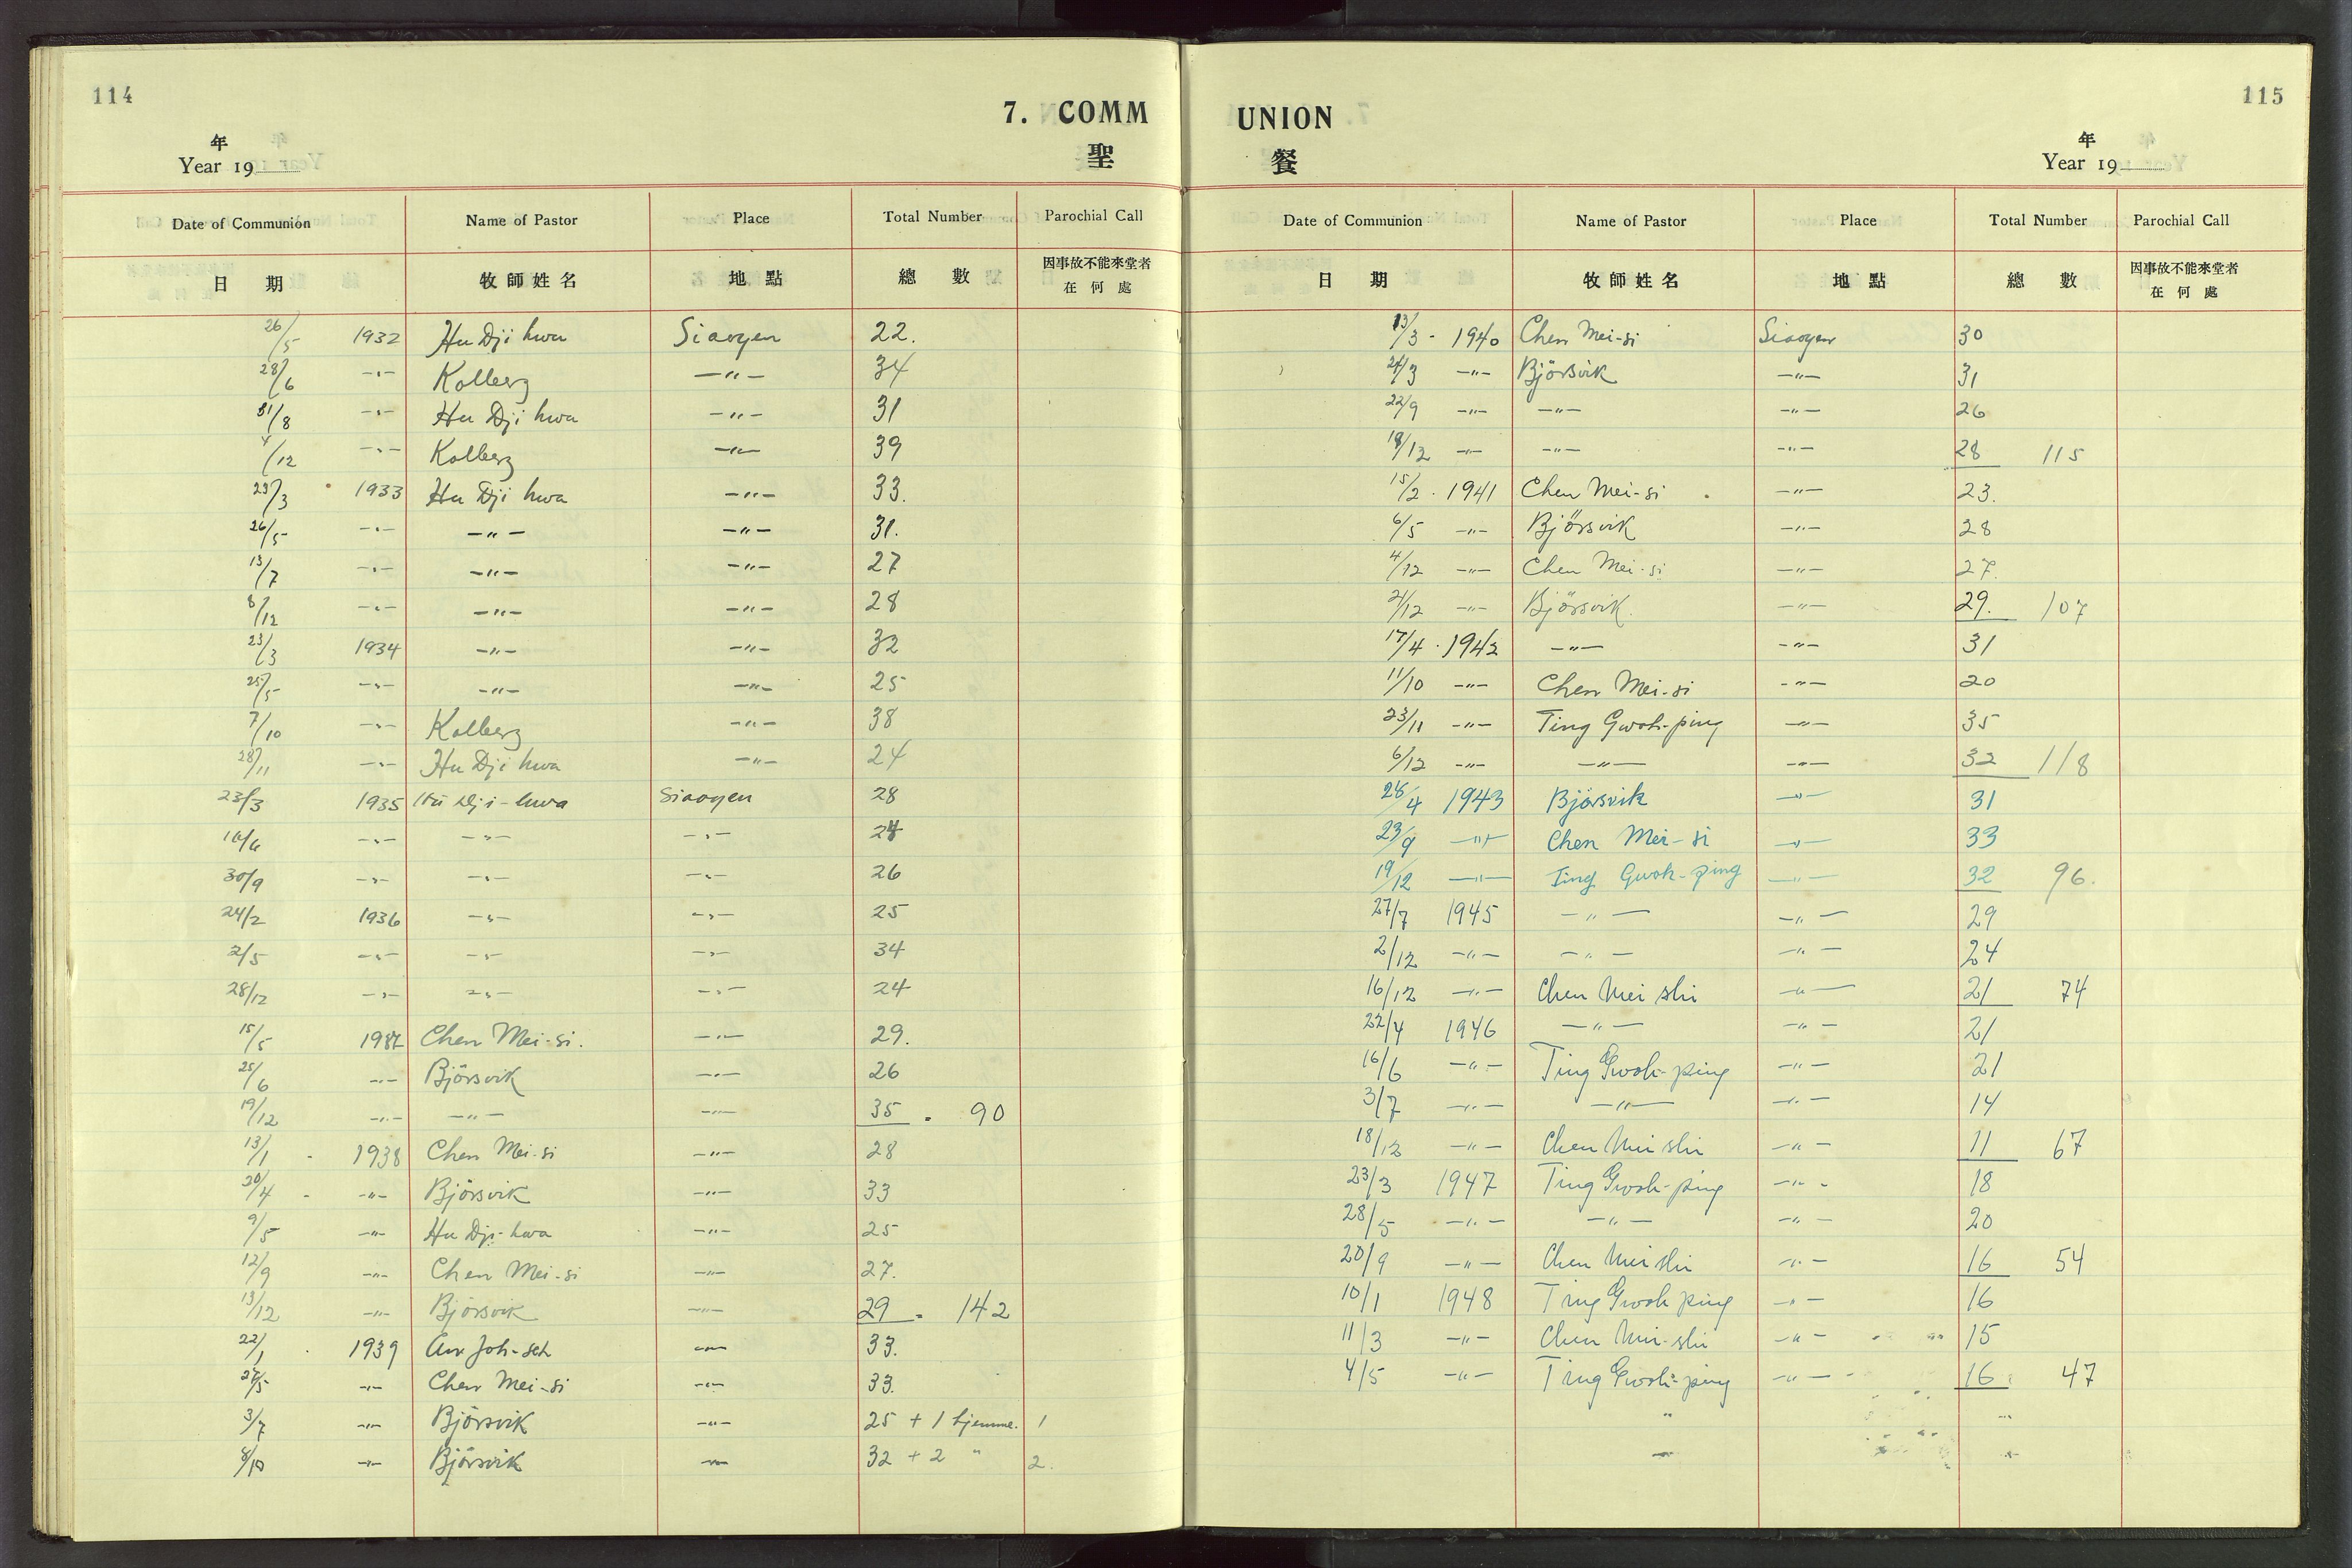 114
7. COMM
年
Year 19
聖
Date of Communion Name of Pastor Place Total Number Parochial Call
日 期 牧師姓名 地點 總 數 因事故不能來堂者
在 何 處
26/5 1932 Hu Dji hwa Siaoyen 22.
28/6 -"- Kolberg -"- 34
31/8 -"- Hu Dji hwa -"- 31
4/12 -"- Kolberg -"- 39
29/3 1933 Hu Dji hwa -"- 33.
26/5 -"- -"- -"- 31.
13/7 -"- -"- -"- 27
8/12 -"- -"- -"- 28
23/3 1934 -"- -"- 32
25/5 -"- -"- -"- 25
7/10 -"- Kolberg -"- 38
28/11 -"- Hu Dji hwa -"- 24
23/3 1935 Hu Dji-hwa Siaoyen 28
16/6 -"- -"- -"- 24
30/9 -"- -"- -"- 26
24/2 1936 -"- -"- 25
2/5 -"- -"- -"- 34
28/12 -"- -"- -"- 24
15/5 1937 Chen Mei-si. -"- 29.
25/6 -"- Björsvik -"- 26
19/12 -"- -"- -"- 35 . 90
13/1 - 1938 Chen Mei-si -"- 28
20/4 - -"- Björsvik -"- 33
9/5 -"- Hu Dji-hwa -"- 25
12/9 -"- Chen Mei-si -"- 27.
13/12 -"- Björsvik -"- 29 . 142
22/1 . 1939 -"- 33.
27/5 -"- Chen Mei-si -"- 33.
3/7 -"- Björsvik -"- 25 + 1 hjemme. 1
8/10 -"- Björsvik -"- 32 + 2 " 2.
115
UNION
年
Year 19
餐
Date of Communion Name of Pastor Place Total Number Parochial Call
日 期 牧師姓名 地點 總 數 因事故不能來堂者
在 何 處
13/3 - 1940 Chen Mei-si Siaoyen 30
24/3 -"- Björsvik -"- 31
22/9 -"- -"- -"- 26
18/12 -"- -"- -"- 28 115
15/2 . 1941 Chen Mei-si . -"- 23.
6/5 -"- Björsvik -"- 28
4/12 -"- Chen Mei-si -"- 27.
21/12 -"- Björsvik. -"- 29. 107
17/4 . 1942 -"- -"- 31
11/10 -"- Chen Mei-si -"- 20
23/11 -"- Ting Gwoh-ping -"- 35
6/12 -"- -"- -"- 32 118
26/4 1943 Björsvik -"- 31
23/9 -"- Chen Mei-si -"- 33
19/12 -"- Ting Gwoh-ping -"- 32 96.
27/7 1945 -"- -"- 29
2/12 -"- -"- -"- 24
16/12 -"- Chen Mei shi -"- 21 74
22/4 1946 -"- -"- 21
16/6 -"- Ting Gwoh-ping -"- 21
3/7 -"- -"- -"- 14
18/12 -"- Chen Mei shi -"- 11 67
23/3 1947 Ting Gwoh-ping -"- 18
28/5 -"- -"- -"- 20
20/9 -"- Chen Mei shi -"- 16 54
10/1 1948 Ting Gwoh ping -"- 16
11/3 -"- Chen Mei-shi -"- 15
4/5 -"- Ting Gwoh-ping -"- 16 47